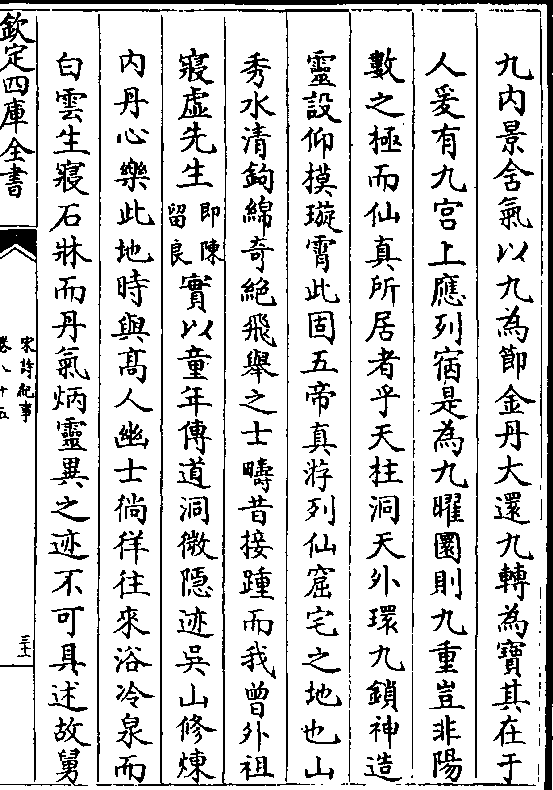 九内景舍氣以九為節金丹大還九轉為寶其在于
人爰有九宫上應列宿是為九曜圜則九重豈非陽
數之極而仙真所居者乎天柱洞天外環九鎖神造
靈設仰摸璇霄此固五帝真游列仙窟宅之地也山
秀水清鉤綿奇絶飛舉之士疇昔接踵而我曾外祖
寢虚先生即陳留良實以童年傳道洞微隠迹吳山修煉
内丹心樂此地時與髙人幽士徜徉往來浴冷泉而
白雲生寢石牀而丹氣炳靈異之迹不可具述故舅
欽定四庫全書
宋詩紀事
卷八十五